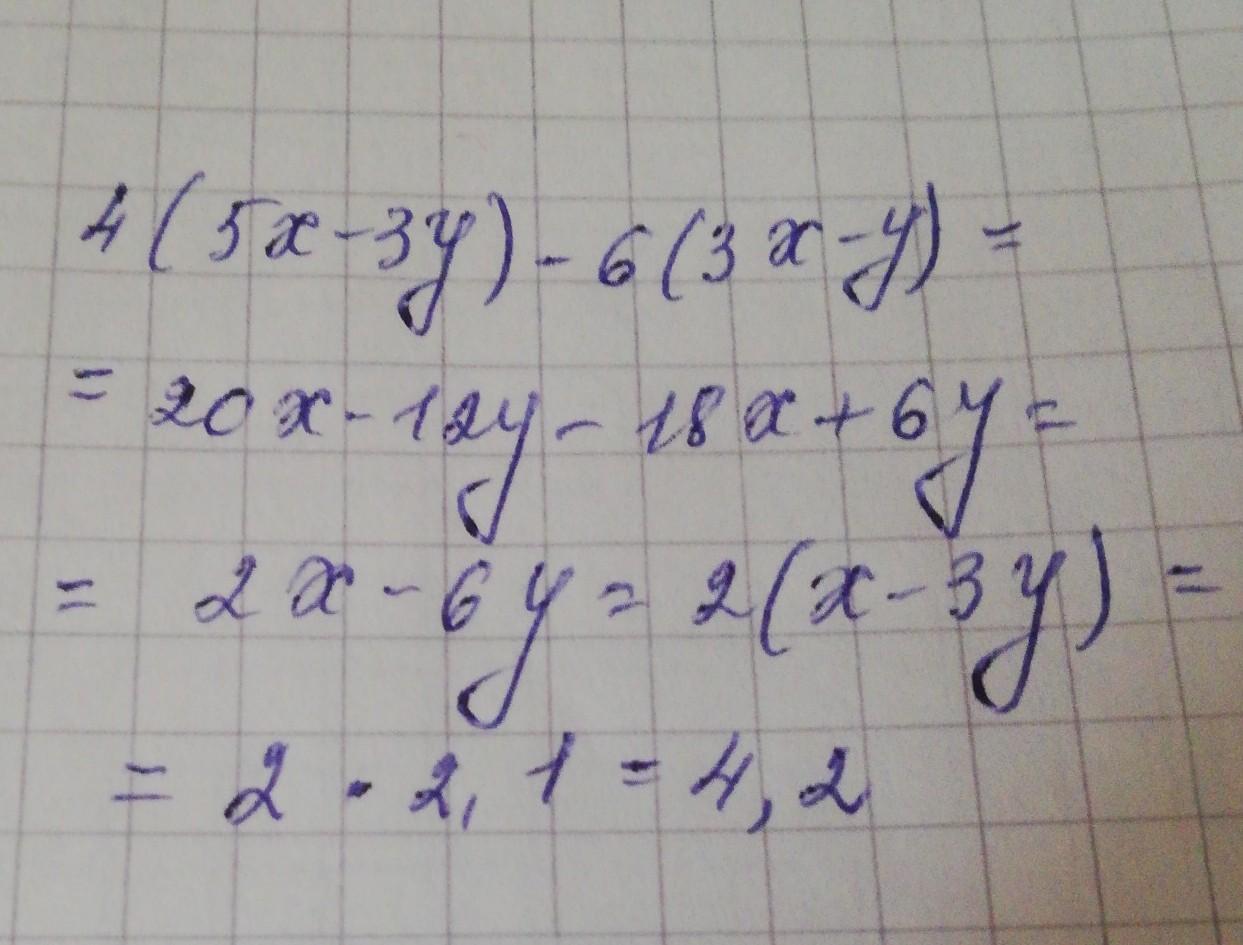 4(5x-3y)-6(3x-y)=
=20x-12y-18x+6y=
= 2x-6y=2(x-3y)=
=2·2,1=4,2